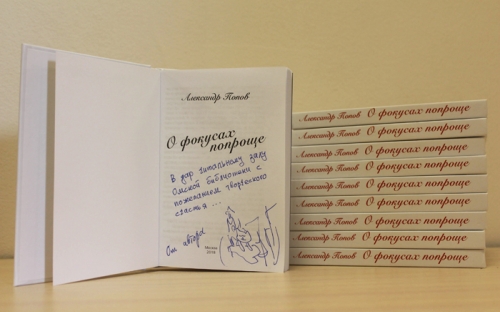 Александр Попов
О фокусах
попроще
В дар читальному залу
Омской библиотеки с
пожеланием творческого
счастья ...
От автора
Москва
Александр Попов О фокусах попроще
Александр Попов О фокусах попроще
Александр Попов О фокусах попроще
Александр Попов О фокусах попроще
Александр Попов О фокусах попроще
Александр Попов О фокусах попроще
Александр Попов О фокусах попроще
Александр Попов О фокусах попроще
Александр Попов О фокусах попроще